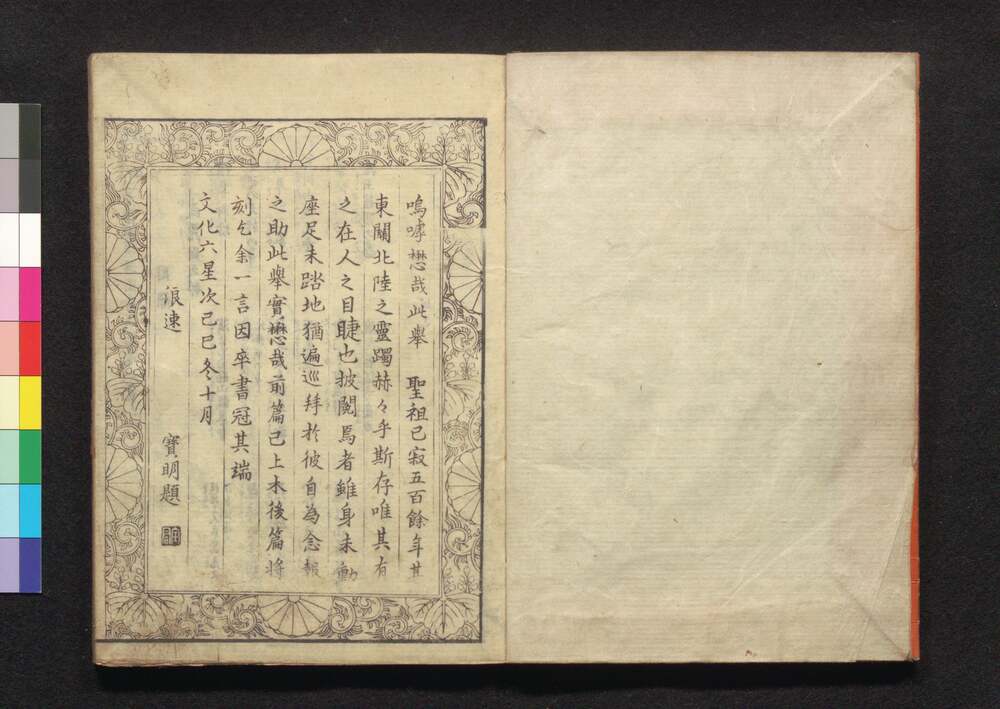 嗚呼懋哉此擧　聖祖已寂五百餘年其
東關北陸之靈躅赫々乎斯存唯其有
之在人之目睫也披閲焉者雖身未動
座足未踏地猶遍巡拜於彼自為念報
之助此擧實懋哉前篇已上木後篇將
刻乞余一言因卒書冠其端
文化六星次己巳冬十月
浪速　寶明題